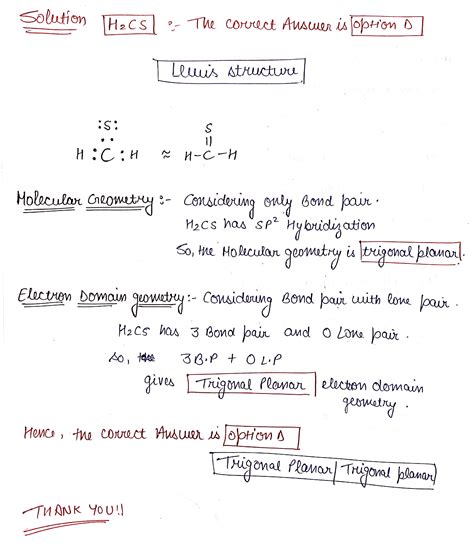 Solution H₂CS :- The correct Answer is option D
Lewis structure
:S:
..
H : C : H ≈ H-C-H
S
||
Molecular Geometry :- Considering only Bond pair.
H₂CS has SP² Hybridization
So, the Molecular geometry is trigonal planar.
Electron Domain geometry:- Considering Bond pair with lone pair.
H₂CS has 3 Bond pair and 0 Lone pair.
so, 3 B.P + 0 L.P
gives Trigonal Planar electon domain
geometry.
Hence, the correct Answer is option D
Trigonal Planar/ Trigonal planar
THANK YOU!!